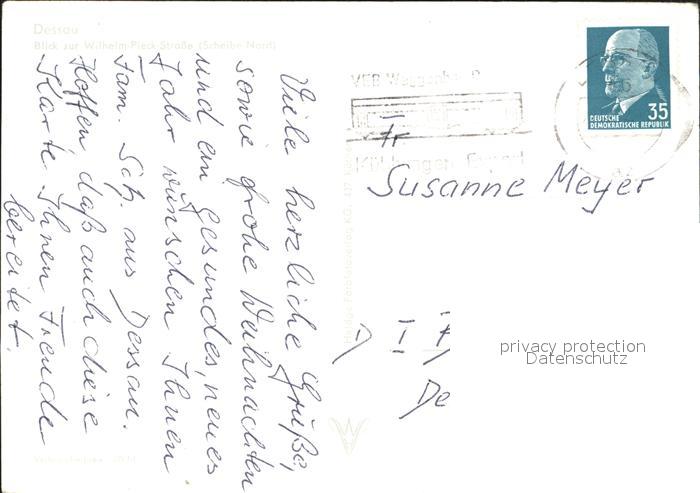 Dessau
Blick zur Wilhelm-Pieck-Straße (Scheibe Nord)
Viele herzliche Grüße,
sowie frohe Weihnachten
und ein gesundes, neues
Jahr wünschen Ihnen
Fam. Sch. aus Dessau.
Hoffen, daß auch diese
Karte Ihnen Freude
bereitet.
35
DEUTSCHE
DEMOKRATISCHE REPUBLIK
VEB
Export
Fr
Susanne Meyer
De
privacy protection
Datenschutz